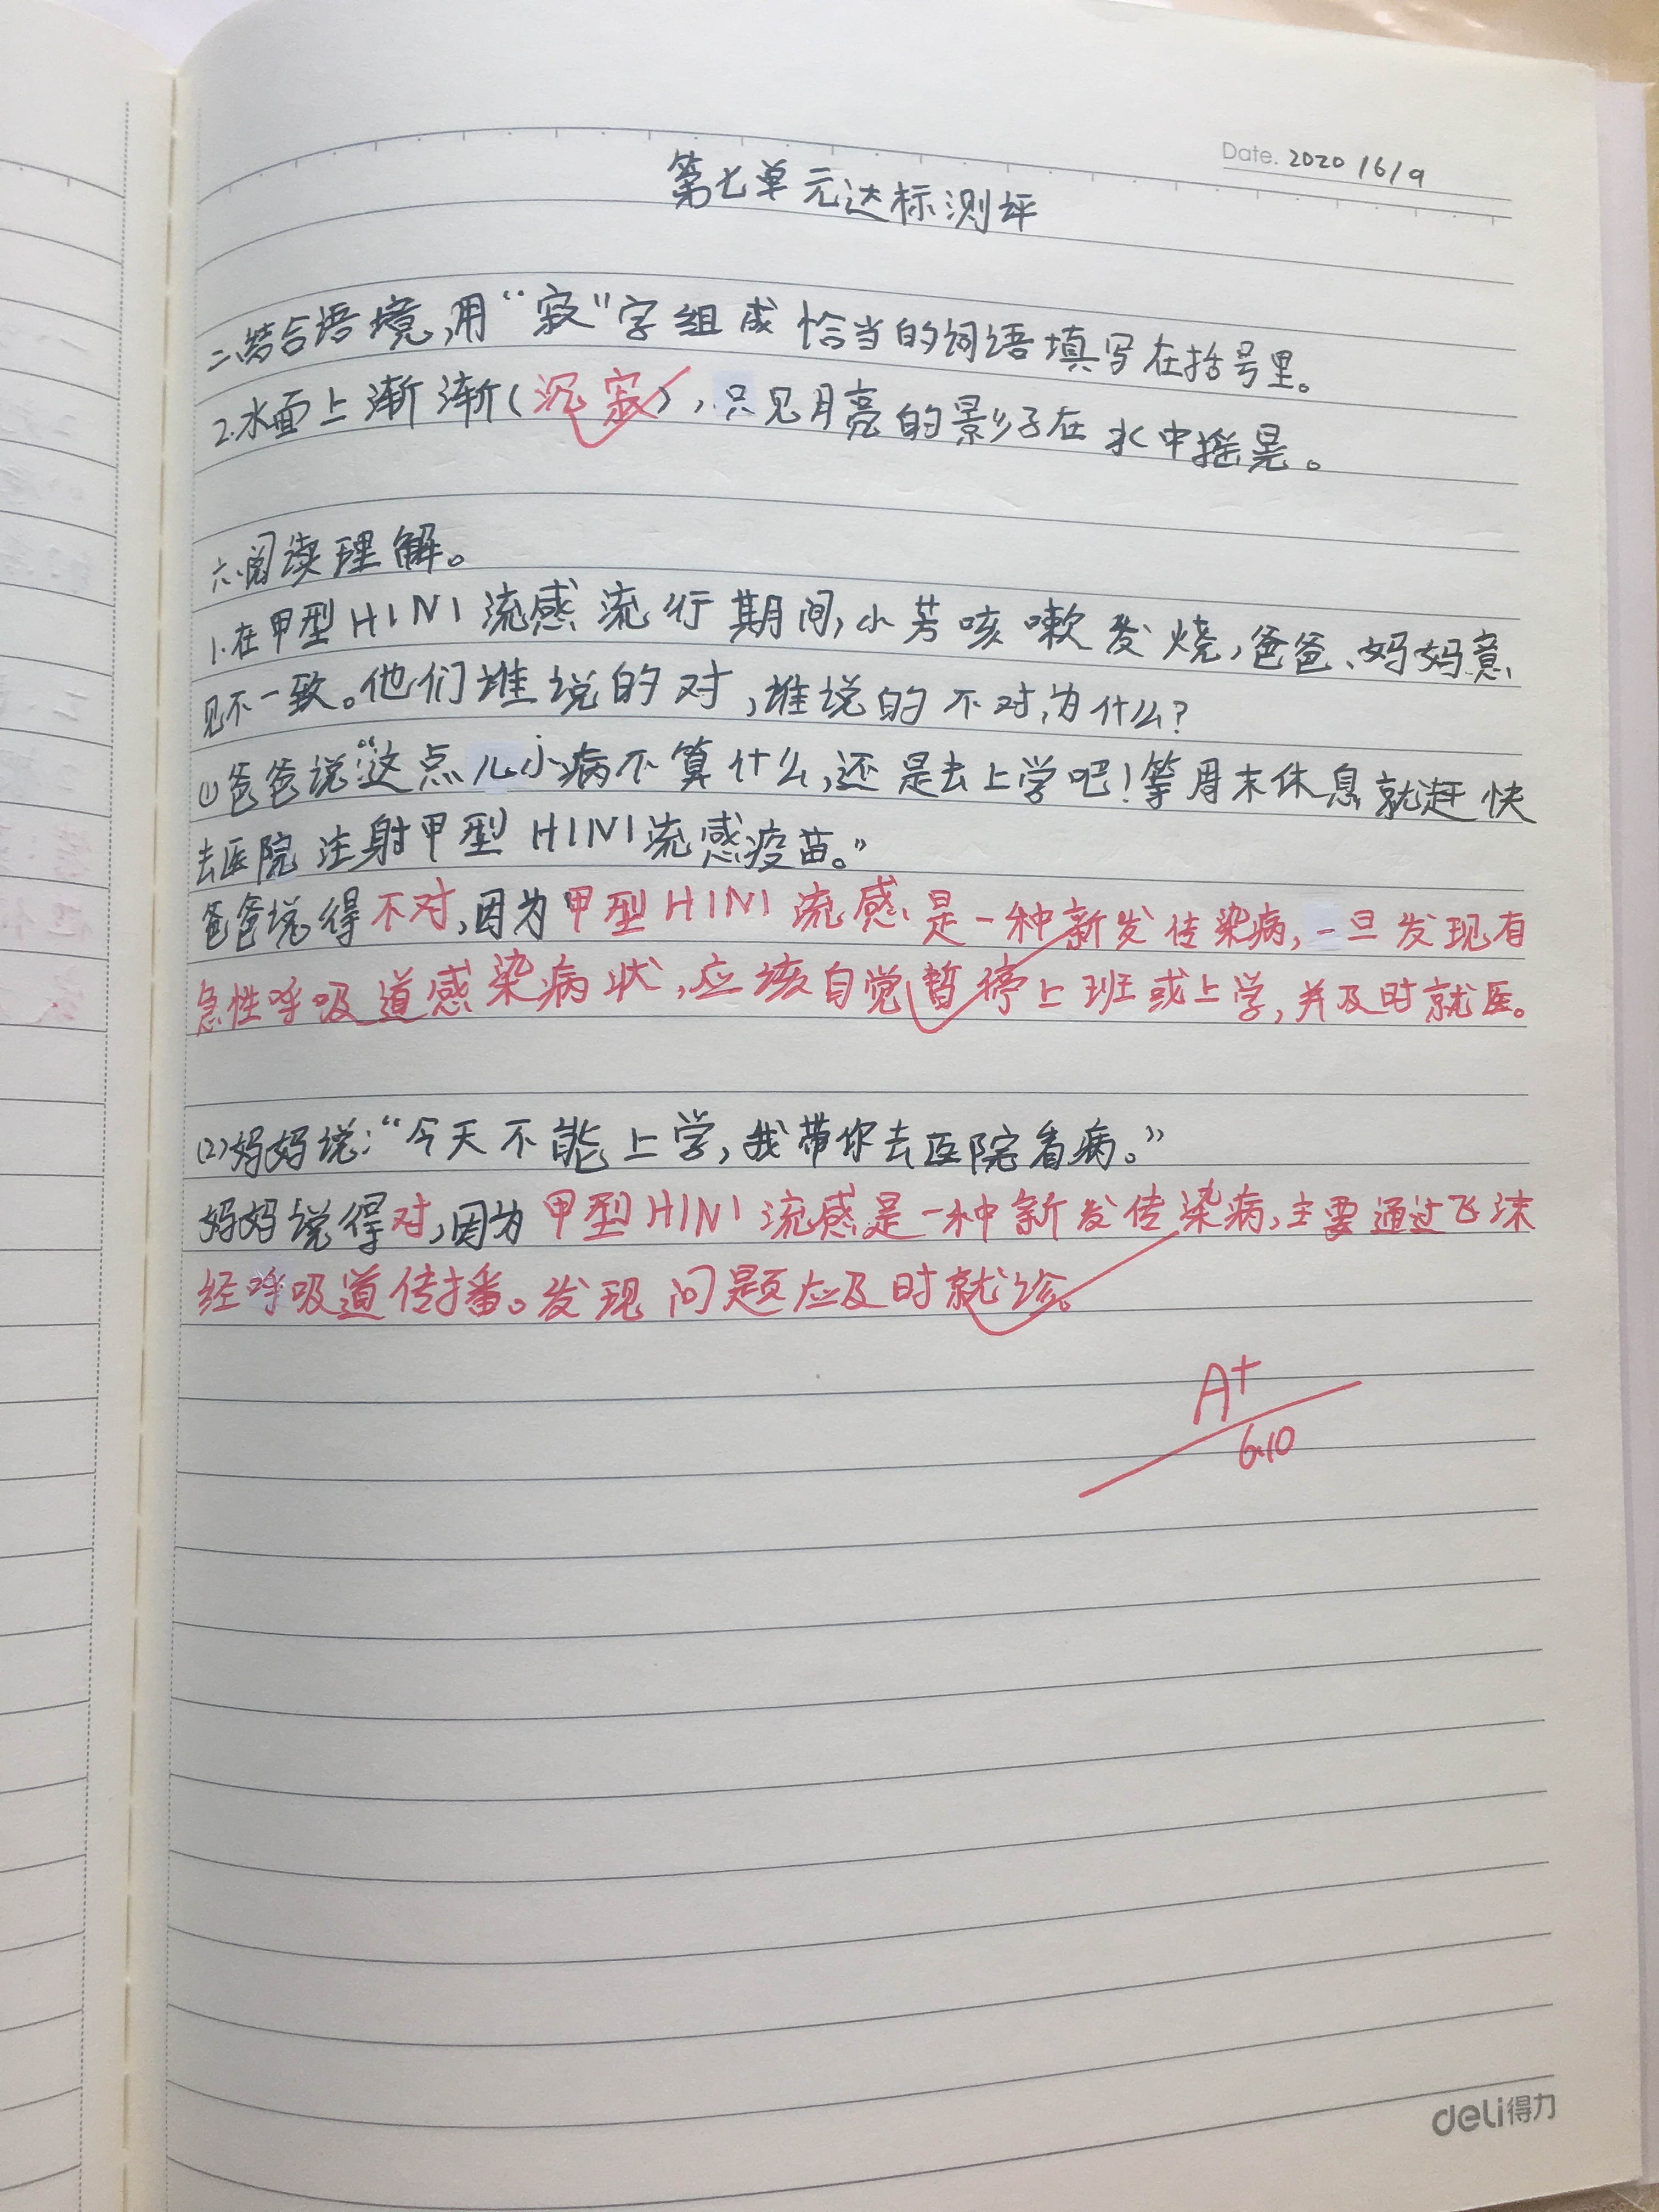 Date. 2020/6/9
第七单元达标测评
二、结合语境,用“寂”字组成恰当的词语填写在括号里。
2.水面上渐渐(沉寂),只见月亮的影子在水中摇晃。
六、阅读理解。
1.在甲型H1N1流感流行期间,小芳咳嗽发烧,爸爸、妈妈意
见不一致。他们谁说的对,谁说的不对,为什么?
(1)爸爸说:“这点儿小病不算什么,还是去上学吧!等周末休息就赶快
去医院注射甲型H1N1流感疫苗。”
爸爸说得不对,因为甲型H1N1流感是一种新发传染病,一旦发现有
急性呼吸道感染病状,应该自觉暂停上班或上学,并及时就医。
(2)妈妈说:“今天不能上学,我带你去医院看病。”
妈妈说得对,因为甲型H1N1流感是一种新发传染病,主要通过飞沫
经呼吸道传播。发现问题应及时就诊。
A+
6.10
deli得力